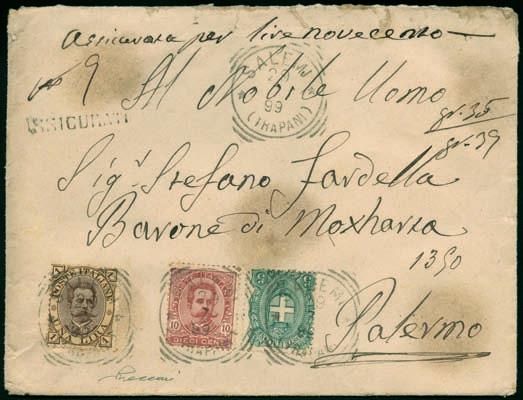 Assicurata per lire novecento
N 9 Al Nobile Uomo
SALEMI
99
(TRAPANI)
ASSICURATA
gr. 38
gr. 39
Sigr Stefano Fardella
Barone di Moxharta
1390
Palermo
POSTE ITALIANE
1 LIRA
10 10
DIECI CENT